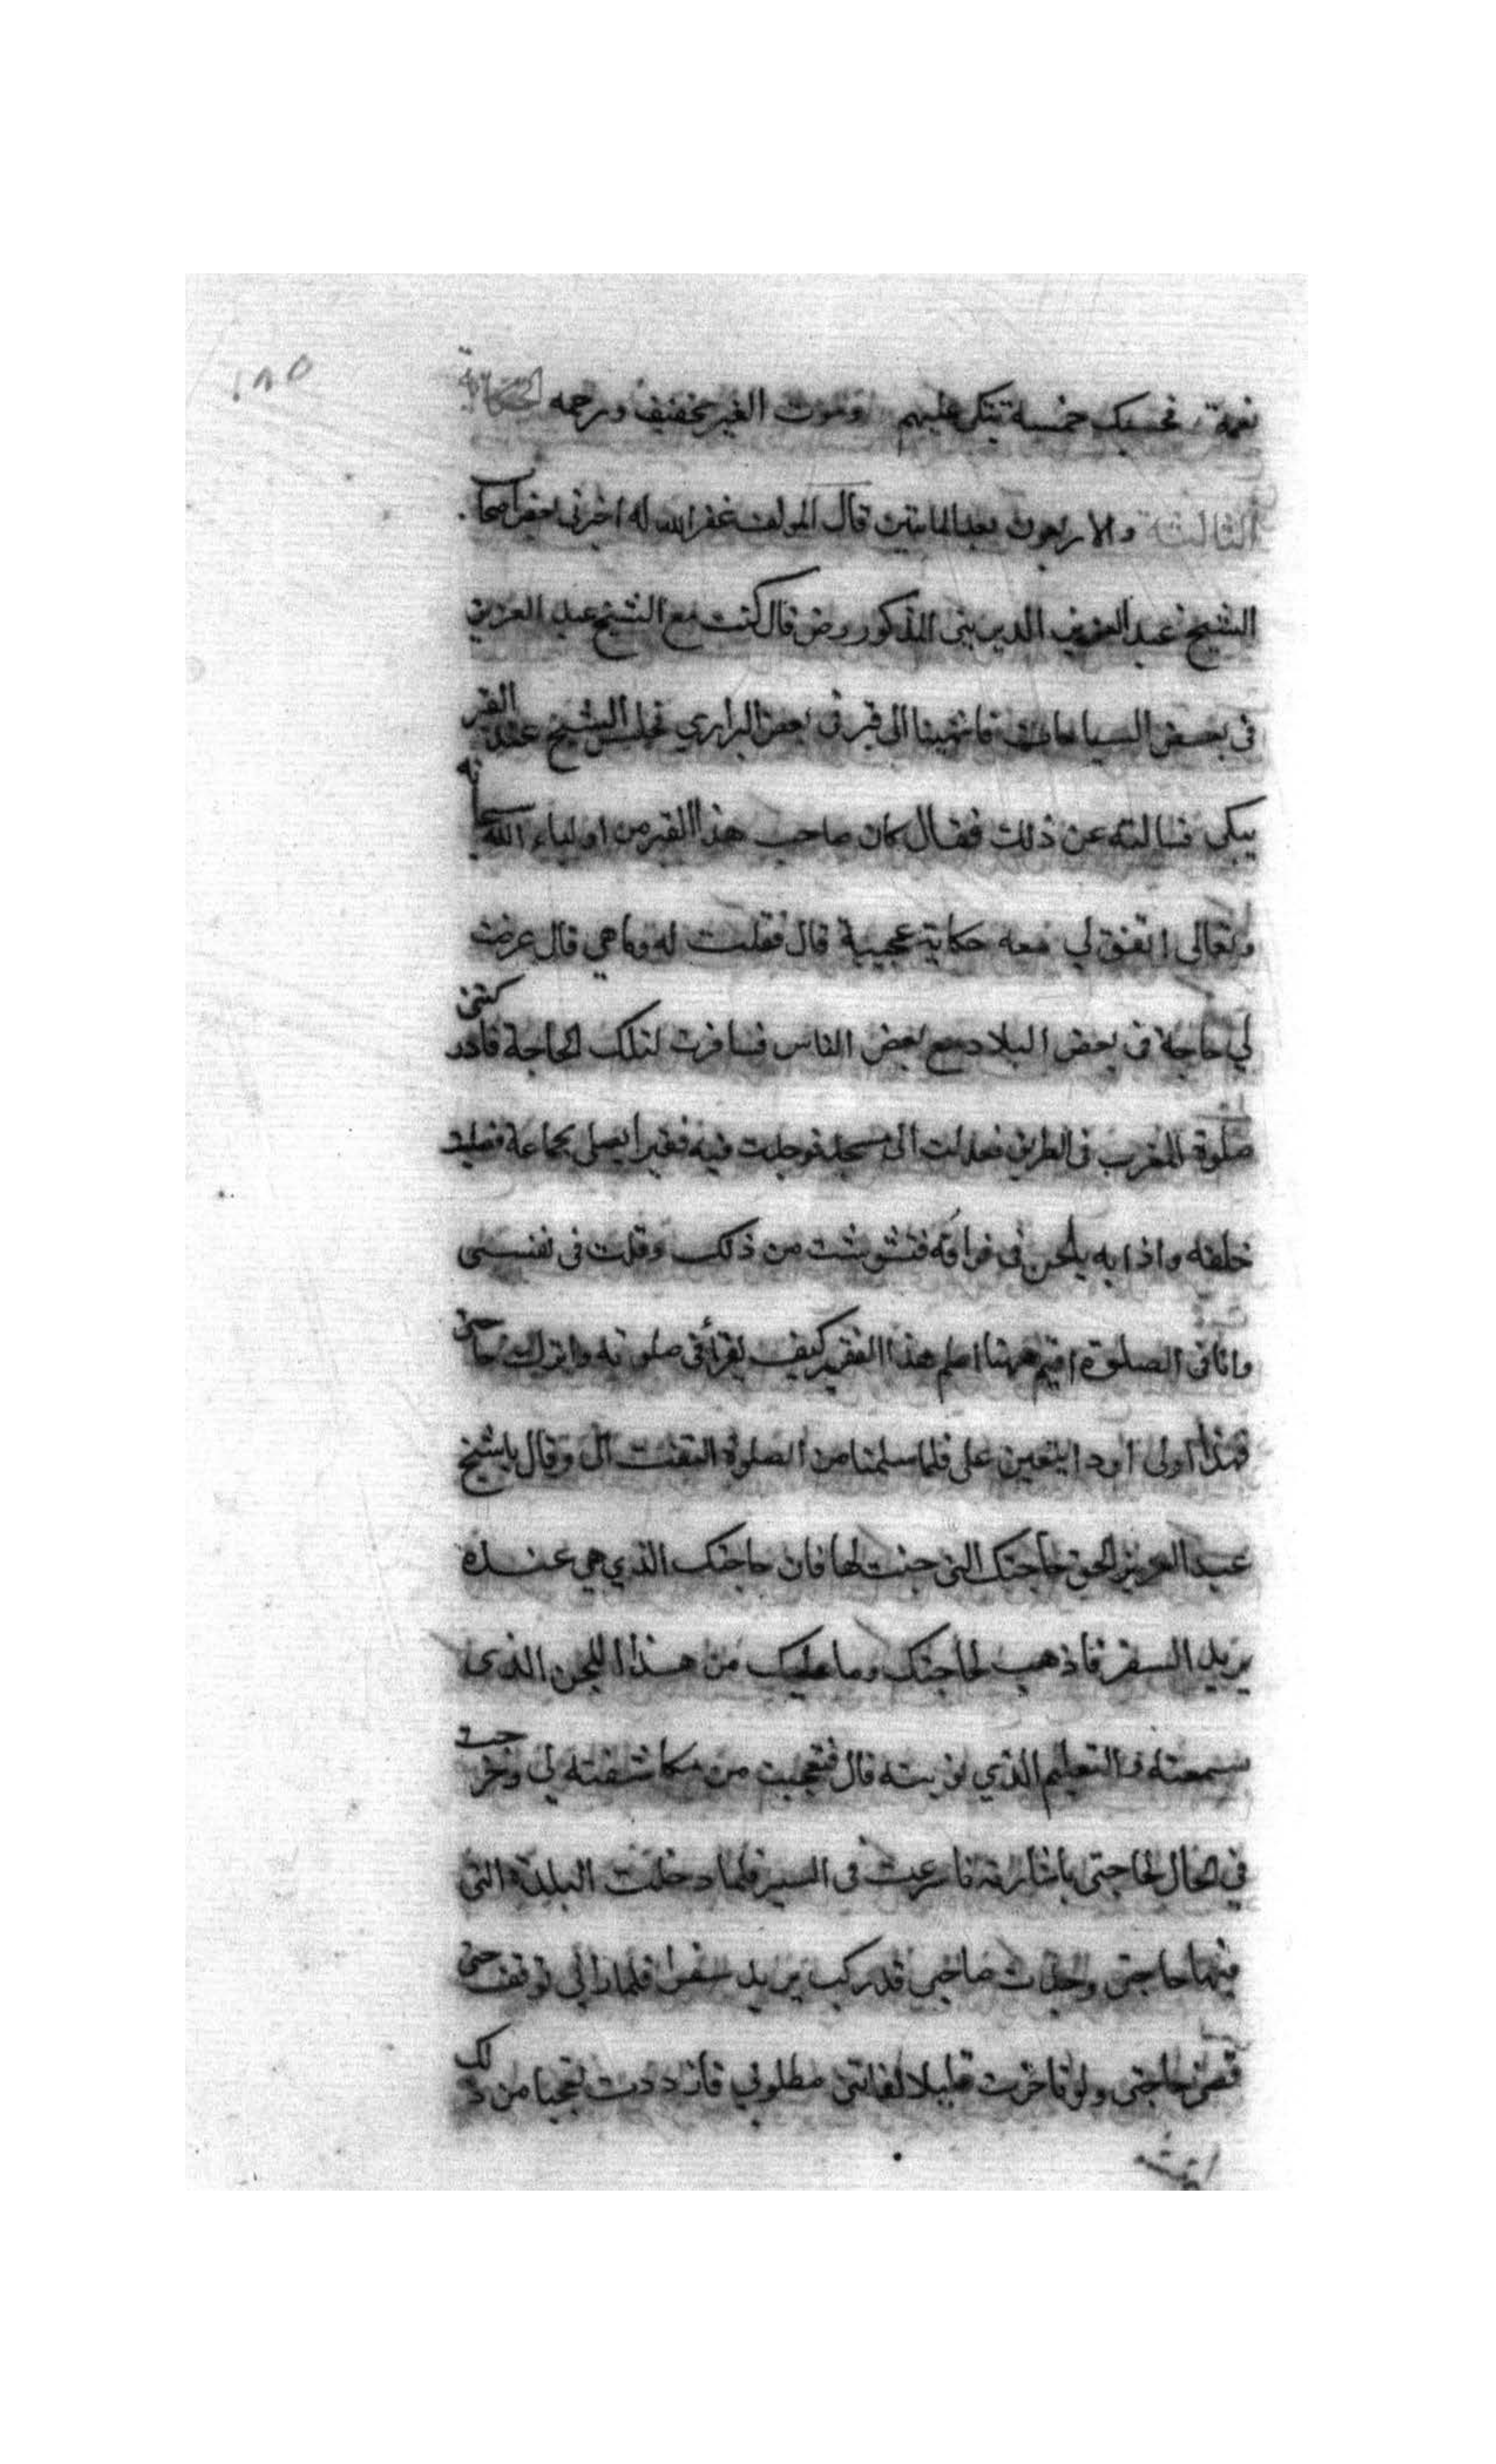 ١٨٥
نعمة فحسبك خمسة تبكي عليهم وموت الغير تخفيف ورحمه الحكاية
الثالثة والاربعون بعد المائتين قال المولف غفر الله له اخبرني بعض اصحاب
الشيخ عبد العزيز الديريني المذكور رض قال كنت مع الشيخ عبد العزيز
في بعض السياحات فانتهينا الى قبر في بعض البراري فجلس الشيخ عند القبر
يبكي فسالته عن ذلك فقال كان صاحب هذا القبر من اولياء الله سبحانه
وتعالى اتفق لي معه حكاية عجيبة قال فقلت له وما هي قال عرضت
لي حاجة في بعض البلاد مع بعض الناس فسافرت لتلك الحاجة فادركتني
صلوة المغرب في الطريق فعدلت الى مسجد فوجدت فيه فقيرا يصلي بجماعة فصليت
خلفه واذا به يلحن في قراته فتشوشت من ذلك وقلت في نفسي
وانا في الصلوة اقيم ههنا اعلم هذا الفقير كيف يقرأ في صلوته واترك حاجتي
فهذا اولى او د ايتعين على فلما سلمنا من الصلوة التفت الى وقال يا شيخ
عبد العزيز الحق حاجتك التي جئت لها فان حاجتك الذي هي عنده
يريد السفر فاذهب لحاجتك وما عليك من هذا اللحن الذي
سمعته والتعليم الذي نويته قال فتعجبت من مكاشفته لي وخرجت
في الحال لحاجتي باشارته فاسرعت في السير فلما دخلت البلدة التي
فيها حاجتي وجدت صاحبي قد ركب يريد سفرا فلما راني توقف حتى
قضى حاجتي ولو تاخرت قليلا لفاتني مطلوبي فازددت تعجبا من ذلك